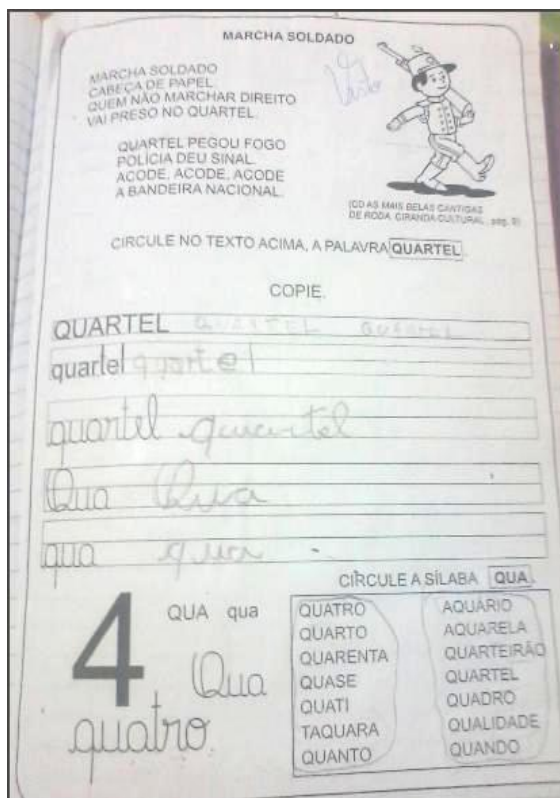 MARCHA SOLDADO
MARCHA SOLDADO
CABEÇA DE PAPEL.
QUEM NÃO MARCHAR DIREITO
VAI PRESO NO QUARTEL.
QUARTEL PEGOU FOGO
POLÍCIA DEU SINAL.
ACODE, ACODE, ACODE
A BANDEIRA NACIONAL.
Visto
(CD AS MAIS BELAS CANTIGAS
DE RODA. CIRANDA CULTURAL, pag. 9)
CIRCULE NO TEXTO ACIMA, A PALAVRA QUARTEL.
COPIE.
QUARTEL QUARTEL QUARTEL
quartel quartel
quartel quartel
Qua Qua
qua qua
CIRCULE A SÍLABA QUA.
4 QUA qua
Qua
quatro.
QUATRO
QUARTO
QUARENTA
QUASE
QUATI
TAQUARA
QUANTO
AQUÁRIO
AQUARELA
QUARTEIRÃO
QUARTEL
QUADRO
QUALIDADE
QUANDO